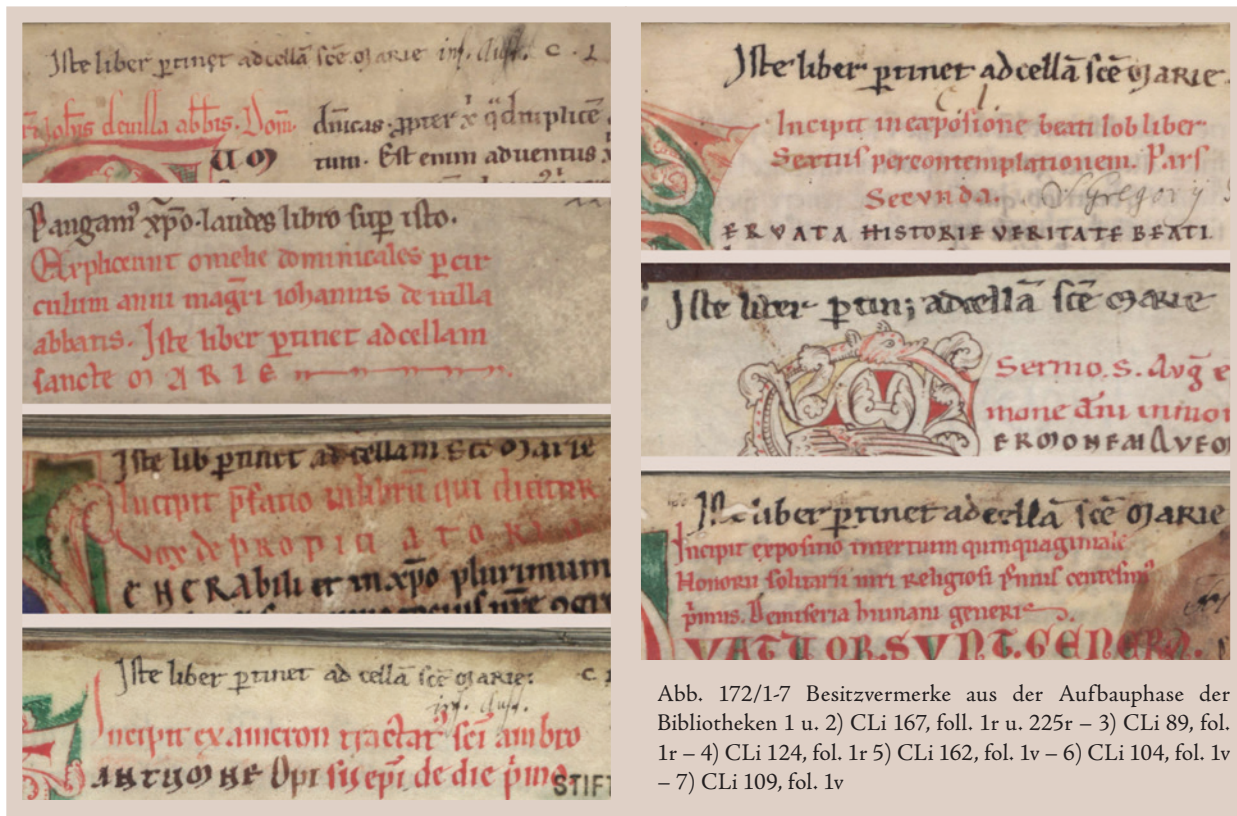 Iste liber ptinet ad cellā scē MARIE inf. Auſt. C. 1
Johis de uilla abbis. Dom̄
dn̄icas. ppter x̄
tum. Est enim aduentus
Pangam⁹ xp̄o laudes libro sup isto.
Expliciunt omelie dominicales p cir
culum anni magr̄i iohannis de uilla
abbatis. Iste liber ptinet ad cellam
sancte MARIE
Iste lib ptinet ad cellam scē MARIE
Incipit p̄fatio in librū qui dicitur
CHCRAbili et in xp̄o plurimum
Iste liber ptinet ad cellā scē MARIE. C 1
inf. Auſt.
Incipit exameron tractat⁹ sc̄i ambro
ANTUOMHE Opi sii ep̄i de die p̄mo.
STIF
Iste liber ptinet ad cellā scē MARIE.
C. l.
Incipit in expositione beati Iob liber
Sextus per contemplationem. Pars
Secvnda. S Gregorij S
ERVATA HISTORIE VERITATE BEATI
Iste liber ptin; ad cellā scē MARIE
Sermo. S. Aug̅ e
mone dn̄i in mon
ERMONEM QVEM
Iste liber ptinet ad cellā scē MARIE
Incipit expositio in tertium quinquaginale
Honorii solitarii uiri Religiosi p̄mus centesim⁹
p̄mus. De miseria humani generis.
VATTVOR. SVNT. GENERA.
Abb. 172/1-7 Besitzvermerke aus der Aufbauphase der
Bibliotheken 1 u. 2) CLi 167, foll. 1r u. 225r – 3) CLi 89, fol.
1r – 4) CLi 124, fol. 1r 5) CLi 162, fol. 1v – 6) CLi 104, fol. 1v
– 7) CLi 109, fol. 1v